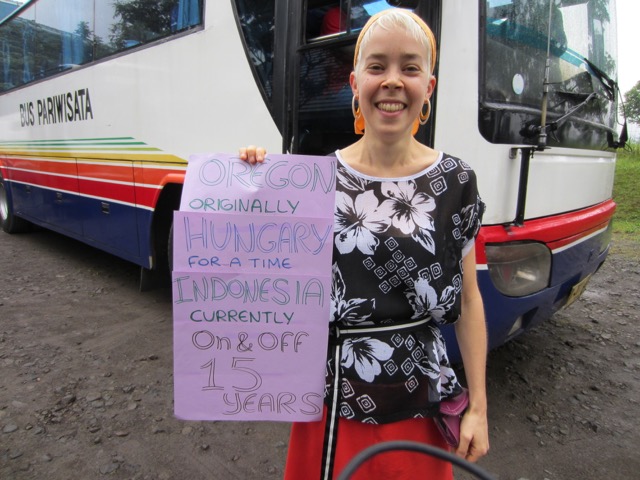 BUS PARIWISATA
OREGON
ORIGINALLY
HUNGARY
FOR A TIME
INDONESIA
CURRENTLY
On & OFF
15
YEARS